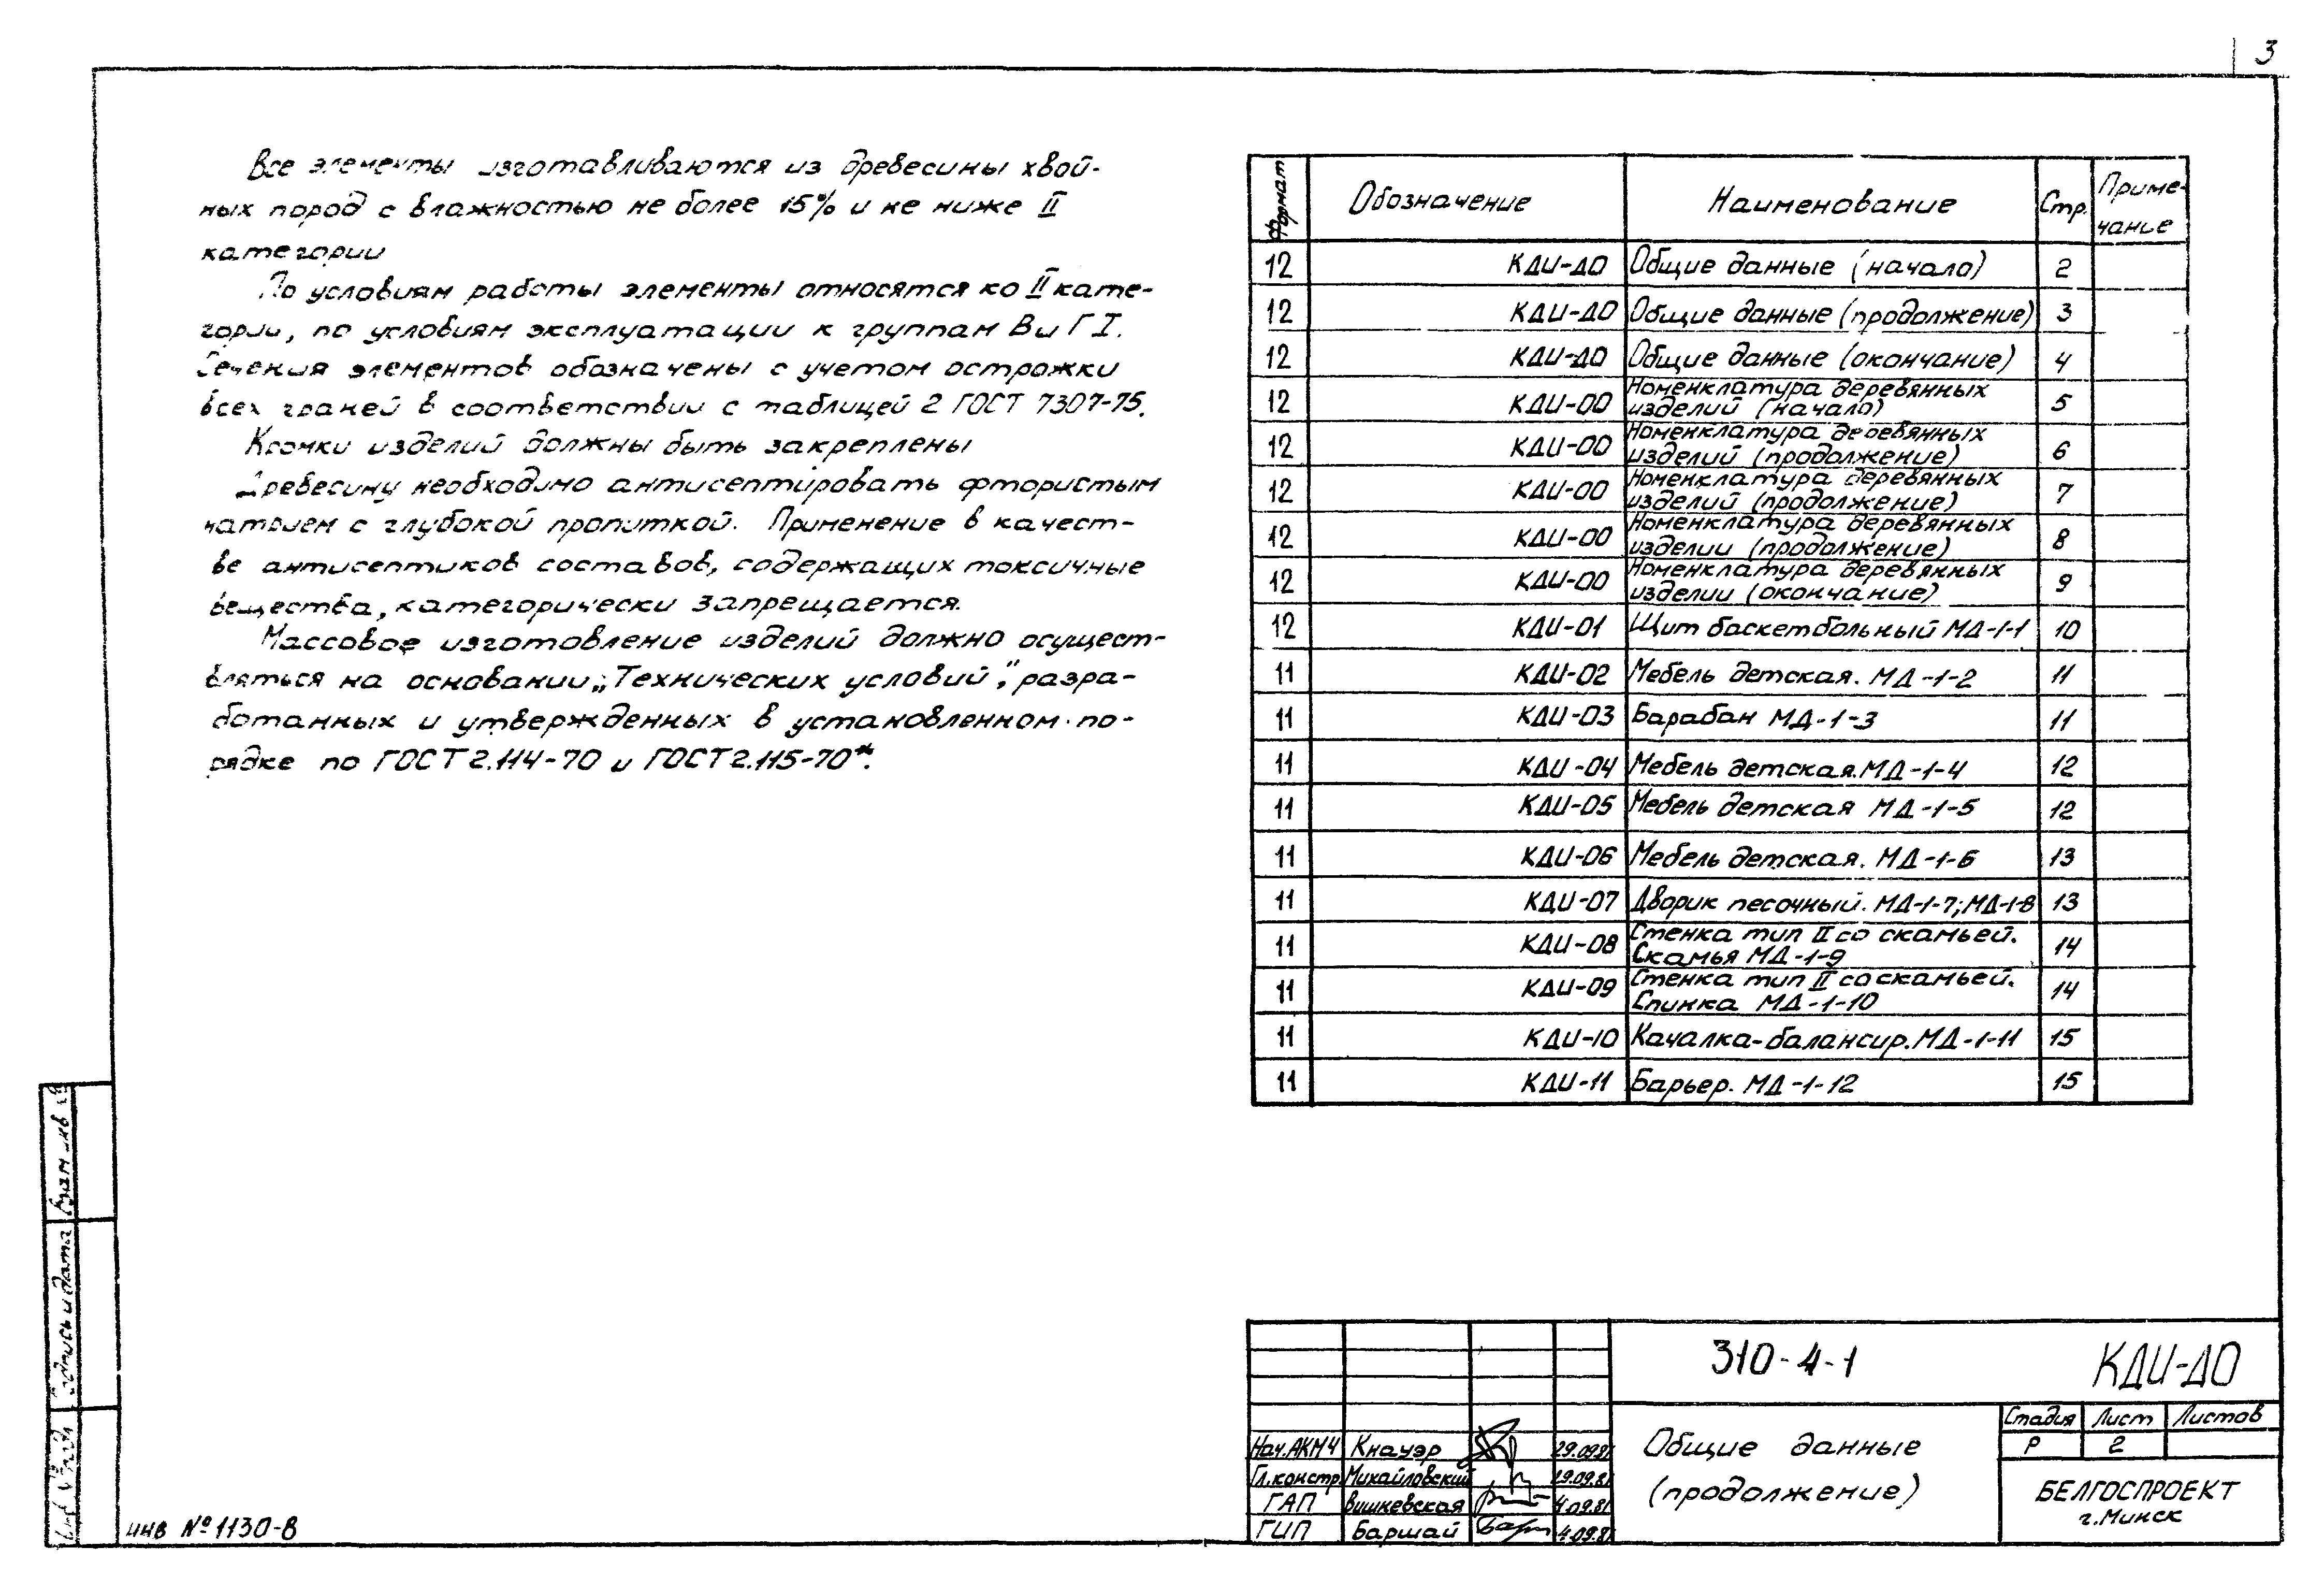 3
Все элементы изготавливаются из древесины хвой-
ных пород с влажностью не более 15% и не ниже II
категории
По условиям работы элементы относятся ко II кате-
гории, по условиям эксплуатации к группам В и Г I.
Сечения элементов обозначены с учетом острожки
всех граней в соответствии с таблицей 2 ГОСТ 7307-75.
Кромки изделий должны быть закреплены
Древесину необходимо антисептировать фтористым
натрием с глубокой пропиткой. Применение в качест-
ве антисептиков составов, содержащих токсичные
вещества, категорически запрещается.
Массовое изготовление изделий должно осущест-
вляться на основании „Технических условий", разра-
ботанных и утвержденных в установленном по-
рядке по ГОСТ 2.114-70 и ГОСТ 2.115-70*.
Формат Обозначение Наименование Стр. Приме-
чание
12 КДИ-ДО Общие данные (начало) 2
12 КДИ-ДО Общие данные (продолжение) 3
12 КДИ-ДО Общие данные (окончание) 4
12 КДИ-00 Номенклатура деревянных
изделий (начало) 5
12 КДИ-00 Номенклатура деревянных
изделий (продолжение) 6
12 КДИ-00 Номенклатура деревянных
изделий (продолжение) 7
12 КДИ-00 Номенклатура деревянных
изделии (продолжение) 8
12 КДИ-00 Номенклатура деревянных
изделии (окончание) 9
12 КДИ-01 Щит баскетбольный МД-1-1 10
11 КДИ-02 Мебель детская. МД-1-2 11
11 КДИ-03 Барабан МД-1-3 11
11 КДИ-04 Мебель детская. МД-1-4 12
11 КДИ-05 Мебель детская МД-1-5 12
11 КДИ-06 Мебель детская. МД-1-6 13
11 КДИ-07 Дворик песочный. МД-1-7; МД-1-8 13
11 КДИ-08 Стенка тип II со скамьей.
Скамья МД-1-9 14
11 КДИ-09 Стенка тип II со скамьей.
Спинка МД-1-10 14
11 КДИ-10 Качалка-балансир. МД-1-11 15
11 КДИ-11 Барьер. МД-1-12 15
310-4-1 КДИ-ДО
Нач. АКМ4 Кнауэр 29.09.81
Гл. констр. Михайловский 29.09.81
ГАП Вишневская 4.09.81
ГИП Баршай 4.09.81
Общие данные
(продолжение)
Стадия Лист Листов
Р 2
БЕЛГОСПРОЕКТ
г. Минск
Взам инв №
Подпись и дата
инв № 1130-В